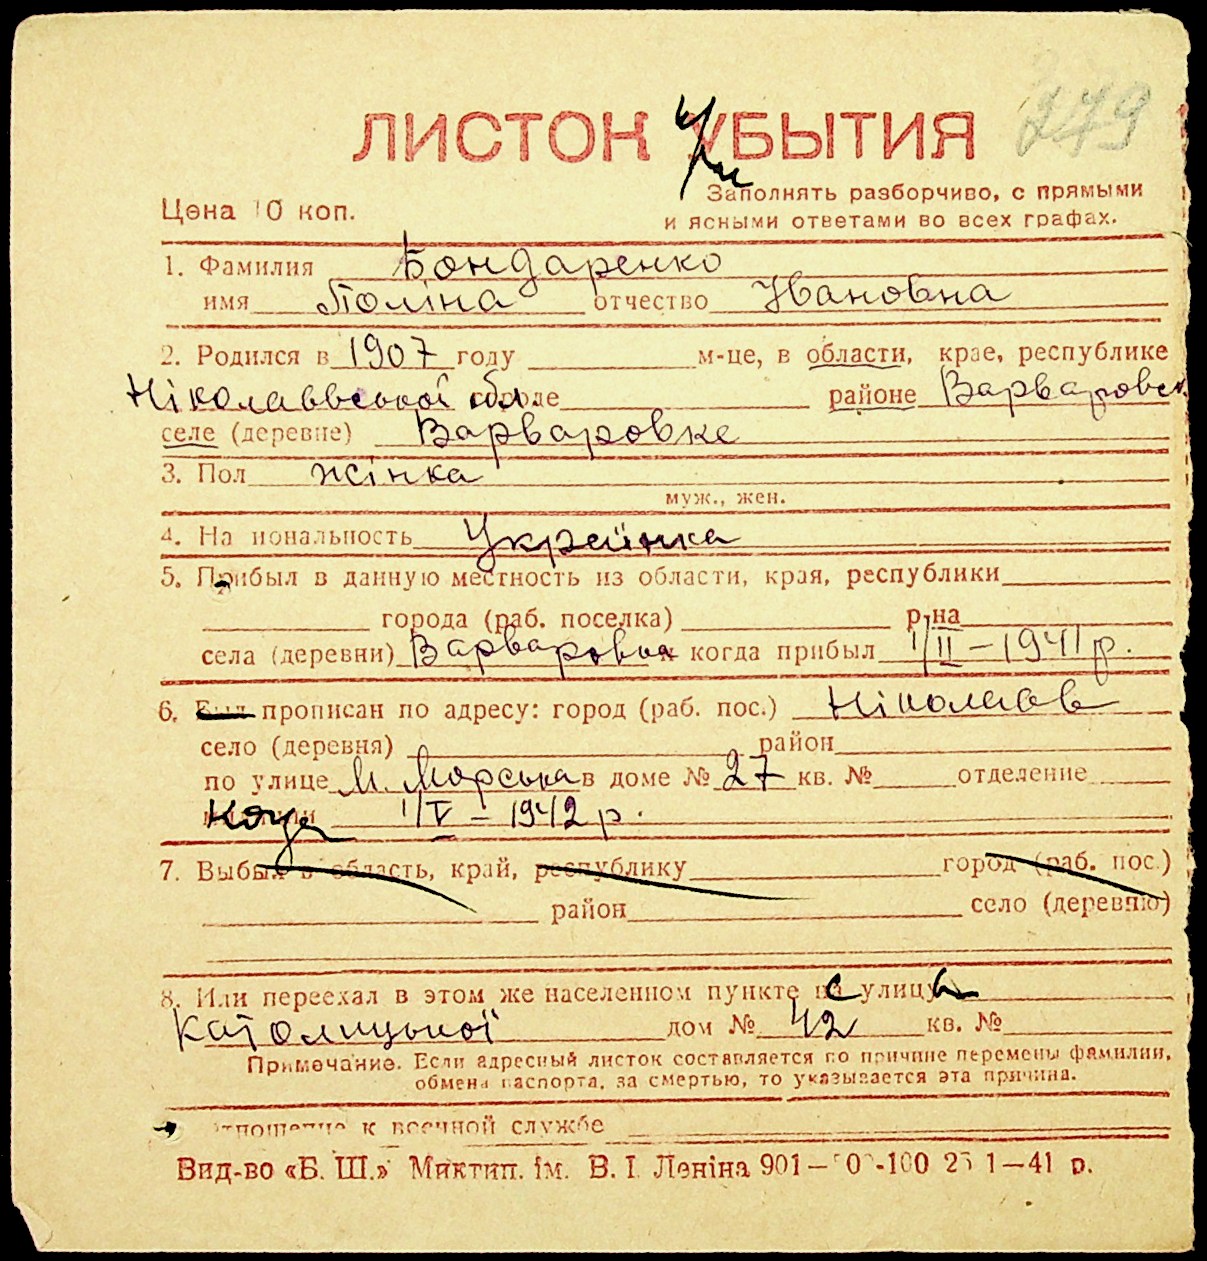 279
ЛИСТОК УБЫТИЯ
При
Цена 10 коп.
Заполнять разборчиво, с прямыми
и ясными ответами во всех графах.
1. Фамилия Бондаренко
имя Поліна отчество Ивановна
2. Родился в 1907 году м-це, в области, крае, республике
Ніколаввської обл. городе районе Варваровск.
селе (деревне) Варваровке
3. Пол жінка
муж., жен.
4. Национальность Українка
5. Прибыл в данную местность из области, края, республики
города (раб. поселка) р-на
села (деревни) Варваровка когда прибыл 1/II – 1941 р.
6. Был прописан по адресу: город (раб. пос.) Ніколаєв
село (деревня) район
по улице М. Морська в доме № 27 кв. № отделение
милиции Когда 1/V – 1942 р.
7. Выбыл в область, край, республику город (раб. пос.)
район село (деревню)
8. Или переехал в этом же населенном пункте с улицы
Католицької дом № 42 кв. №
Примечание. Если адресный листок составляется по причине перемены фамилии,
обмена паспорта, за смертью, то указывается эта причина.
отношение к военной службе
Вид-во «Б. Ш.» Миктип. ім. В. І. Леніна 901— -100 25 1—41 р.